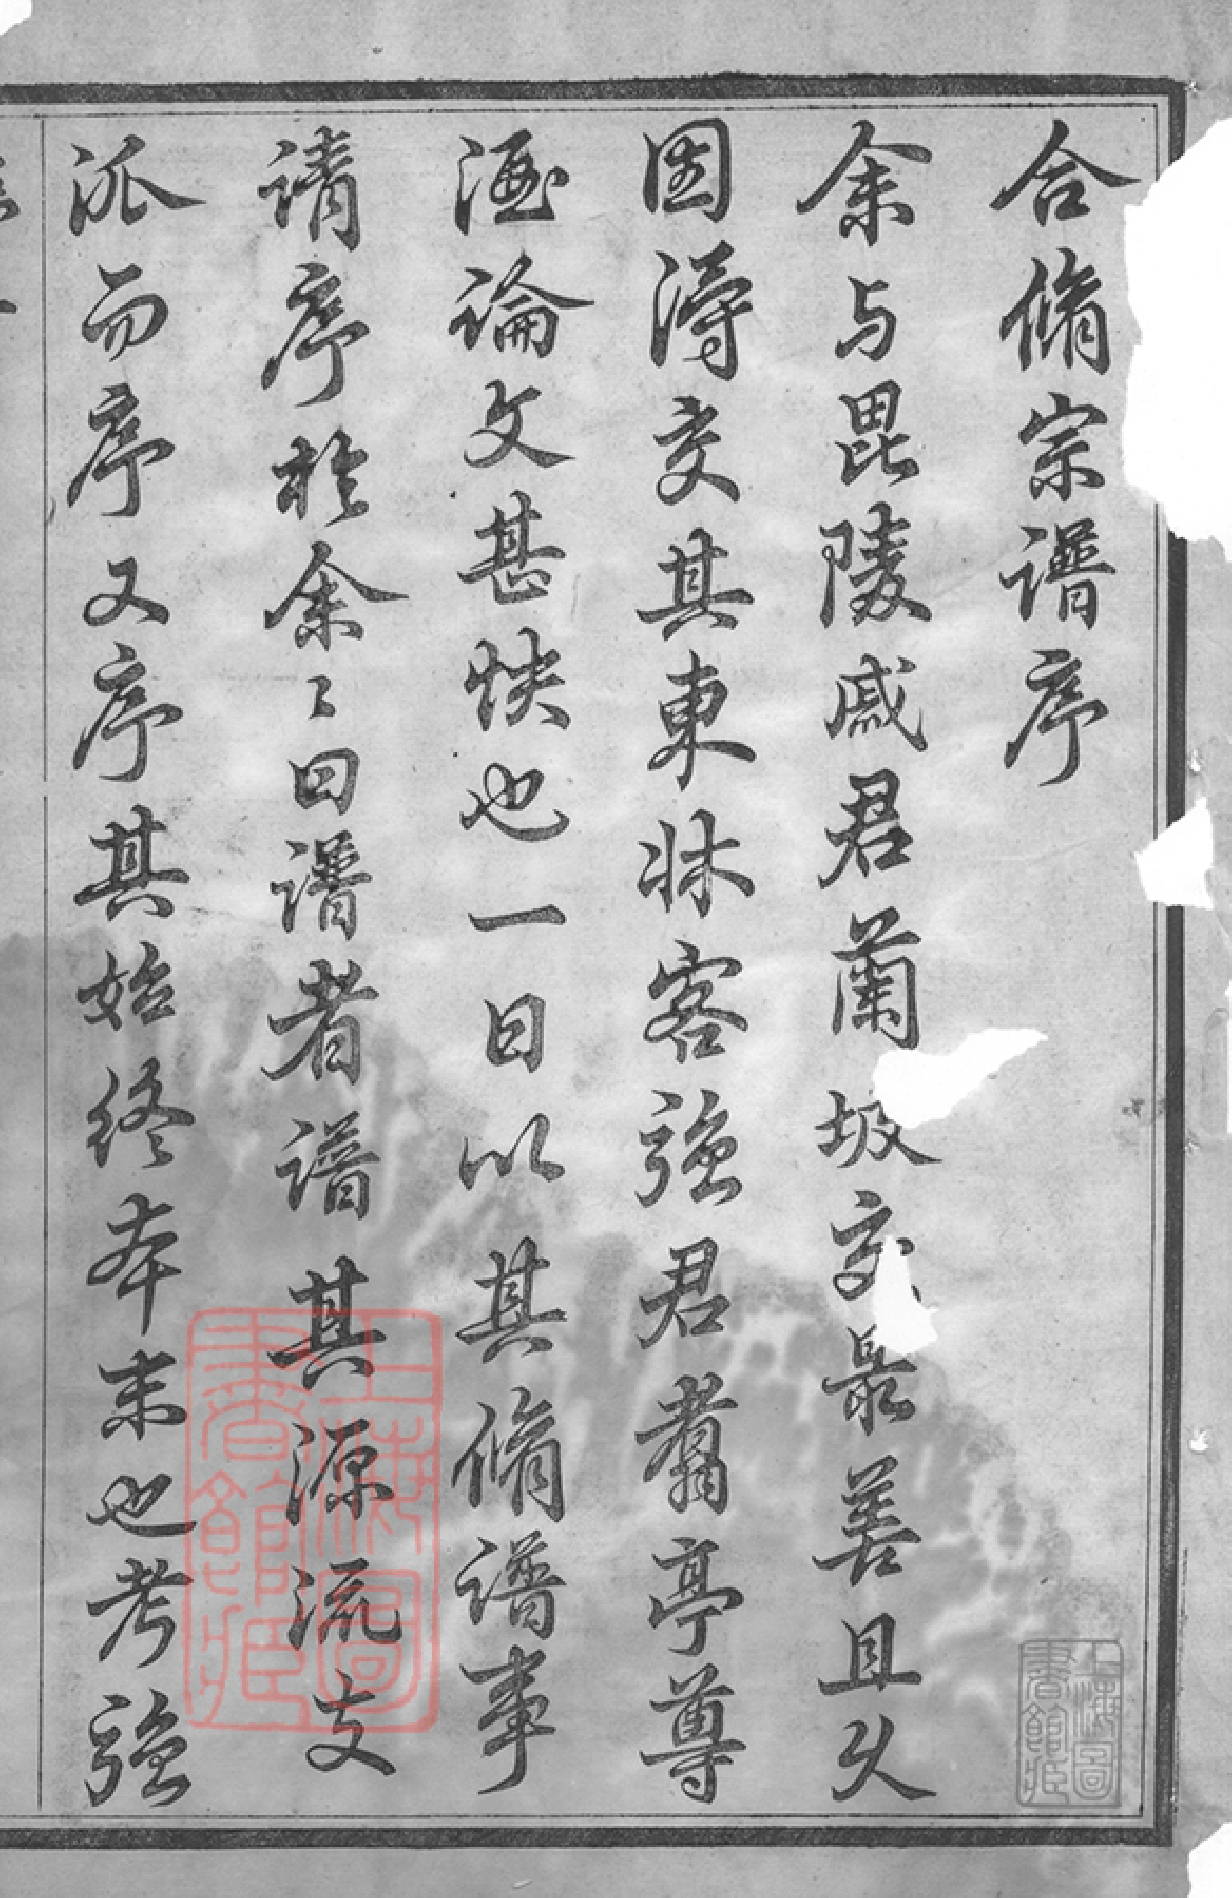 合脩宗譜序
余与毘陵戚君蘭坡交最善且久
因得交其東牀客強君翥亭尊
酒論文甚快也一日以其脩譜事
請序於余〻曰譜者譜其源流支
派而序又序其始终本末也考強
上海圖書館藏
上海圖書館藏